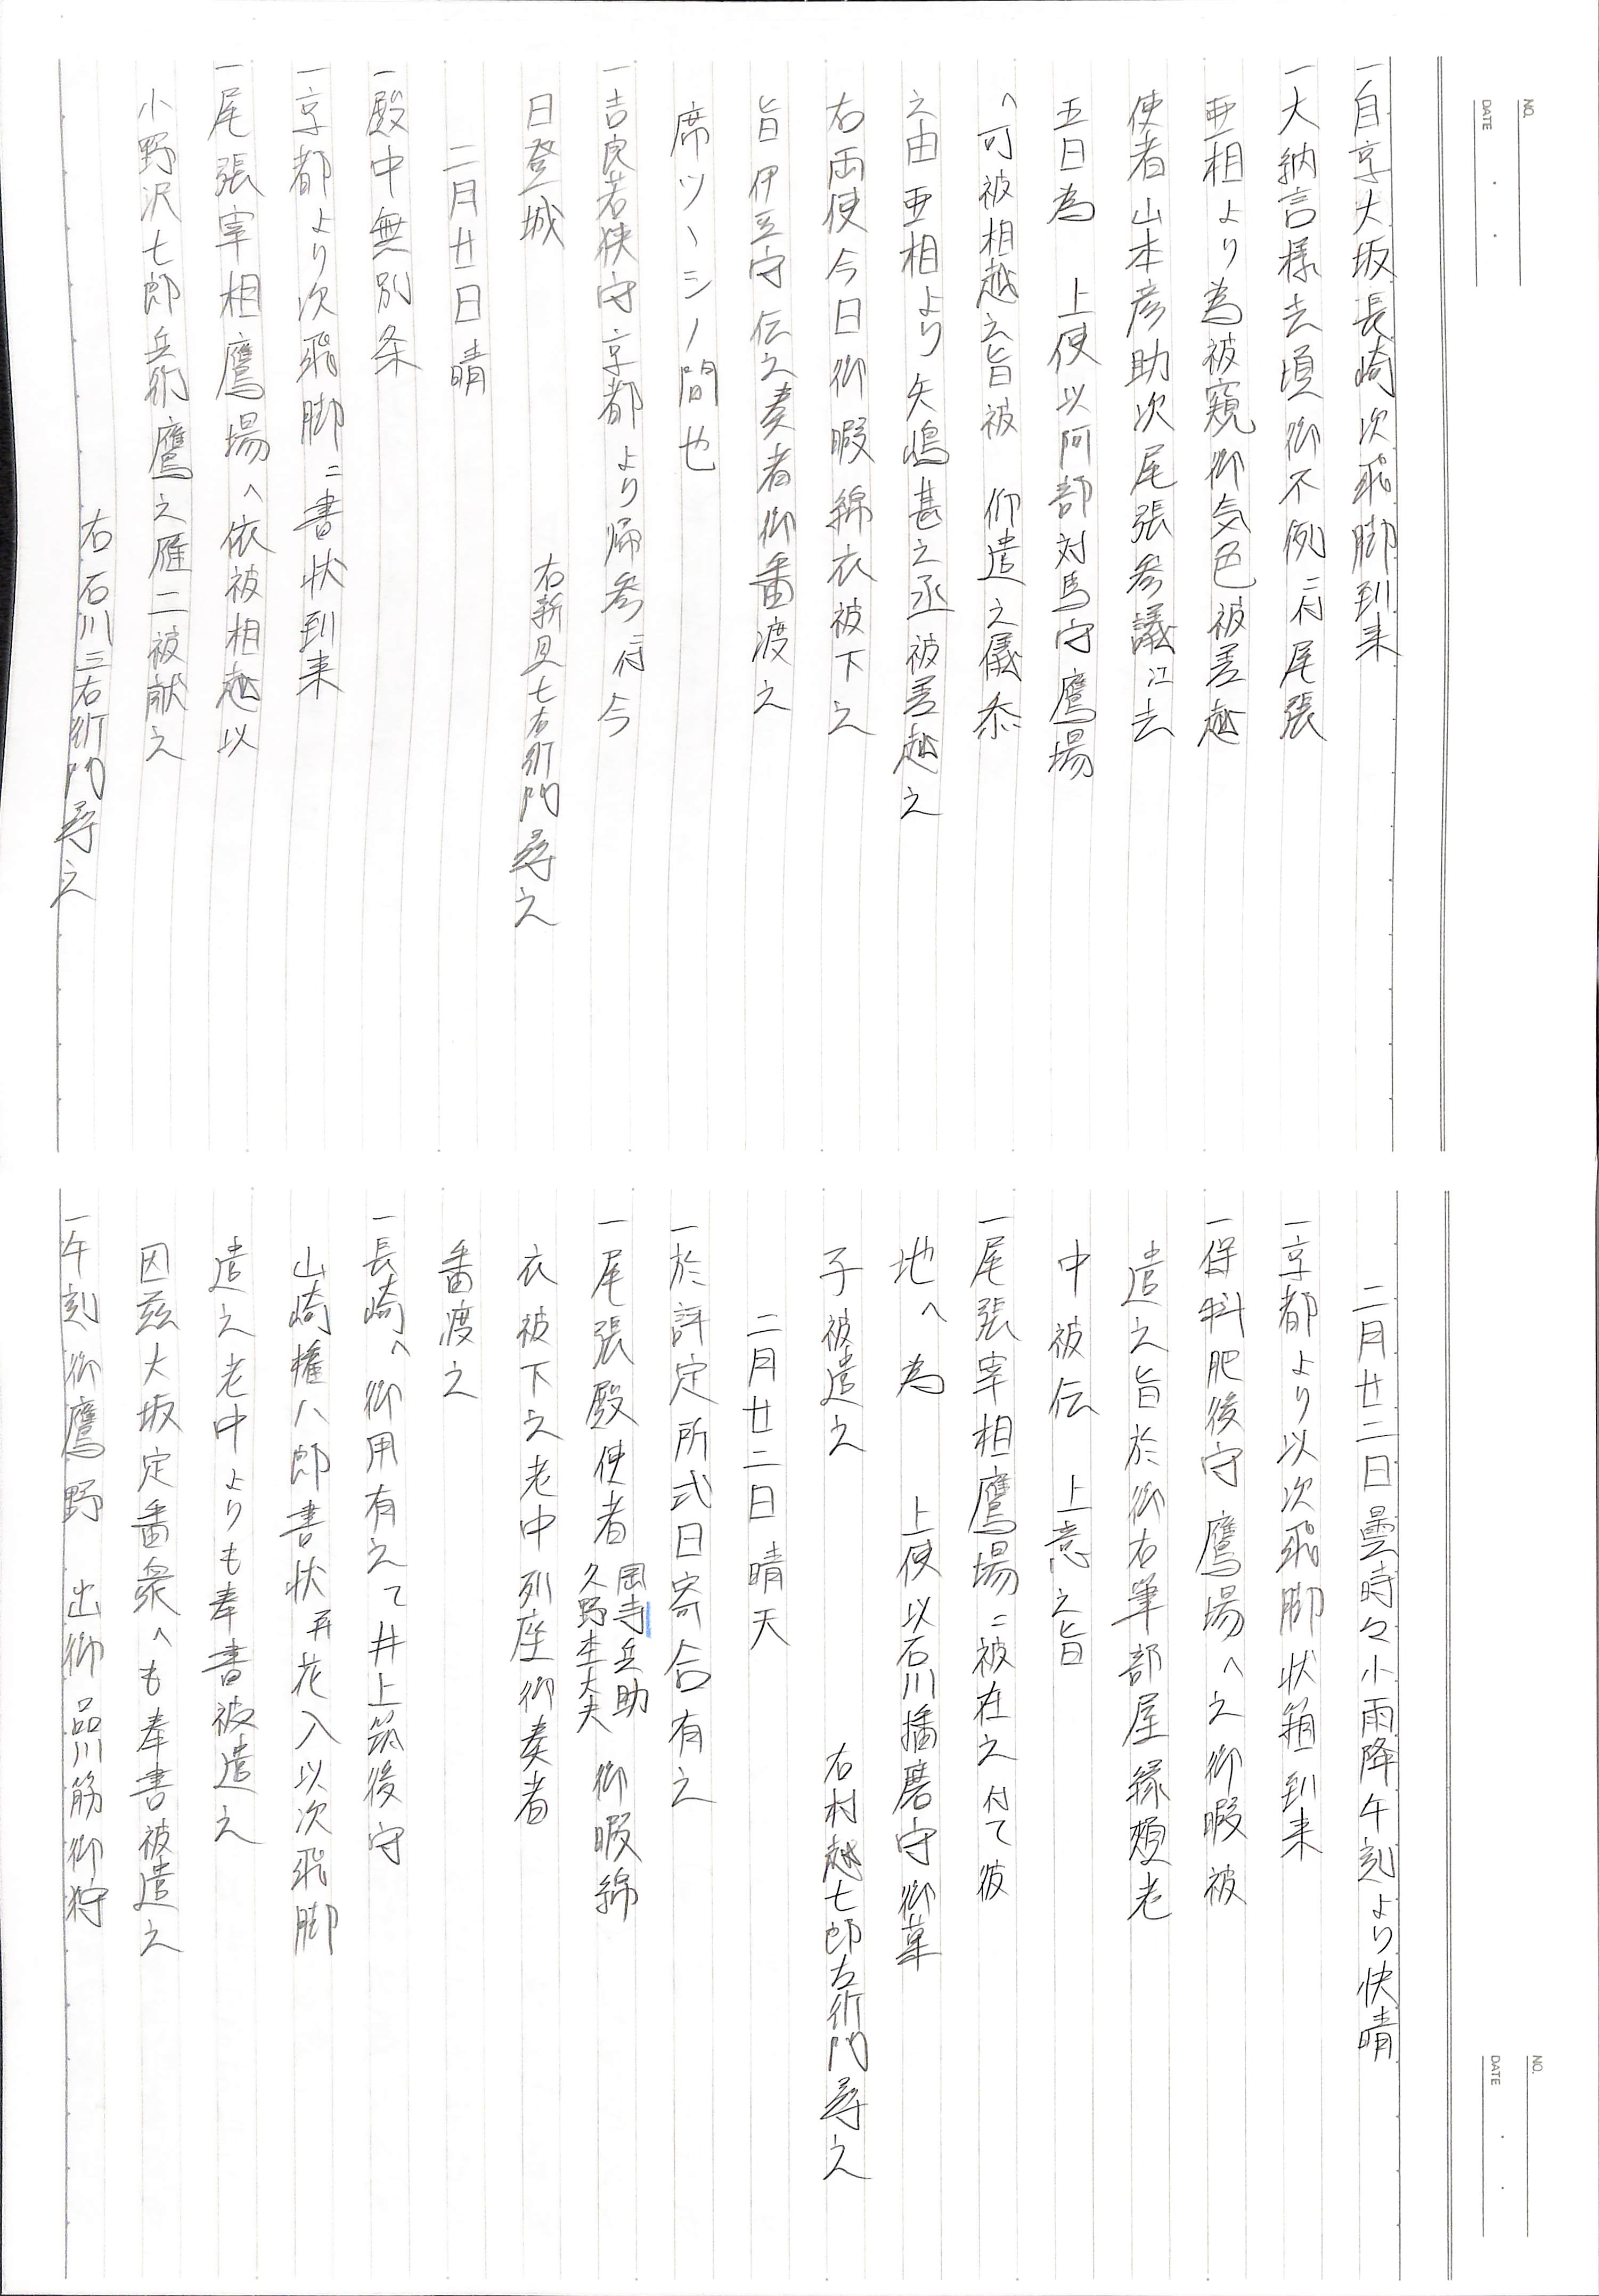 NO.
DATE
一自京大坂長崎次飛脚到来
一大納言様去頃御不例ニ付尾張
亜相より為被窺御気色被差越
使者山本彦助次尾張参議江去
五日為　上使以阿部対馬守鷹場
へ可被相越之旨被　仰遣之儀忝
之由亜相より矢嶋甚之丞被差越之
右両使今日御暇綿衣被下之
旨伊豆守伝之奏者御番渡之
席ツヽシノ間也
一吉良若狭守京都より帰参ニ付今
日登城
右新見七右衛門尋之
二月廿一日晴
一殿中無別条
一京都より次飛脚ニ書状到来
一尾張宰相鷹場へ依被相越以
小野沢七郎兵衛鷹之雁二被献之
右石川三右衛門尋之
NO.
DATE
二月廿二日曇時々小雨降午刻より快晴
一京都より以次飛脚状箱到来
一保科肥後守鷹場へ之御暇被
遣之旨於御右筆部屋縁頬老
中被伝　上意之旨
一尾張宰相鷹場ニ被在之付て彼
地へ為　上使以石川播磨守御菓
子被遣之
右村越七郎左衛門尋之
二月廿二日晴天
一於評定所式日寄合有之
一尾張殿使者 岡寺兵助 久野杢大夫 御暇綿
衣被下之老中列座御奏者
番渡之
一長崎へ御用有之て井上筑後守
山崎権八郎書状并花入以次飛脚
遣之老中よりも奉書被遣之
因茲大坂定番衆へも奉書被遣之
一午刻御鷹野　出御品川筋御狩